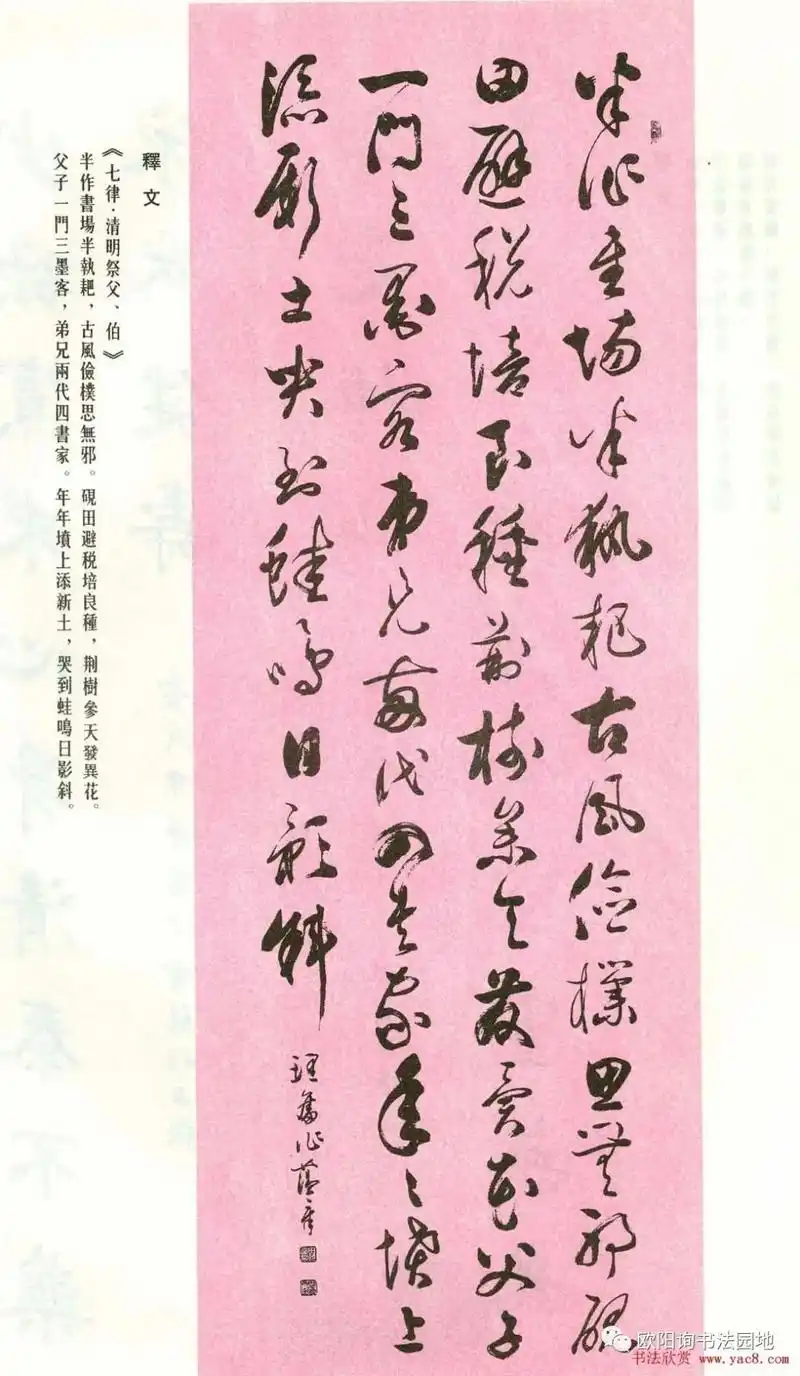 半作書場半執耙古風儉樸思無邪硯
田避税培良種荊樹參天發異花父子
一門三墨客弟兄兩代四書家年々墳上
添新土哭到蛙鳴日影斜
舊作
釋文
《七律·清明祭父、伯》
半作書場半執耙，古風儉樸思無邪。硯田避税培良種，荆樹參天發異花。
父子一門三墨客，弟兄兩代四書家。年年墳上添新土，哭到蛙鳴日影斜。
欧阳询书法园地
书法欣赏 www.yac8.com